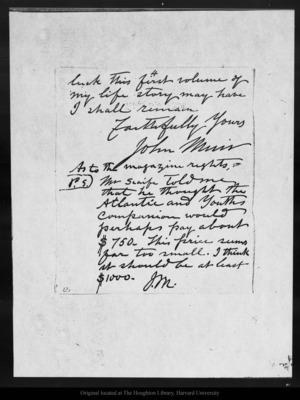 luck this first volume of
my life story may have
I shall remain
Faithfully Yours
John Muir
As to the magazine rights,
P.S. Mr told me
that he thought the
Atlantic and Youths
Companion would
perhaps pay about
$750. This price seems
far too small. I think
it should be at least
$1000. J.M.
Original located at The Houghton Library, Harvard University